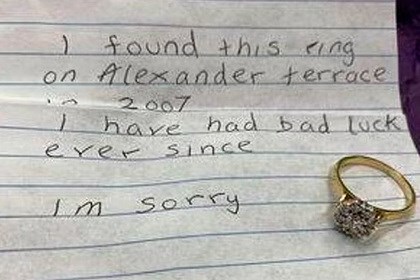 I found this ring
on Alexander terrace
in 2007
I have had bad luck
ever since
Im sorry